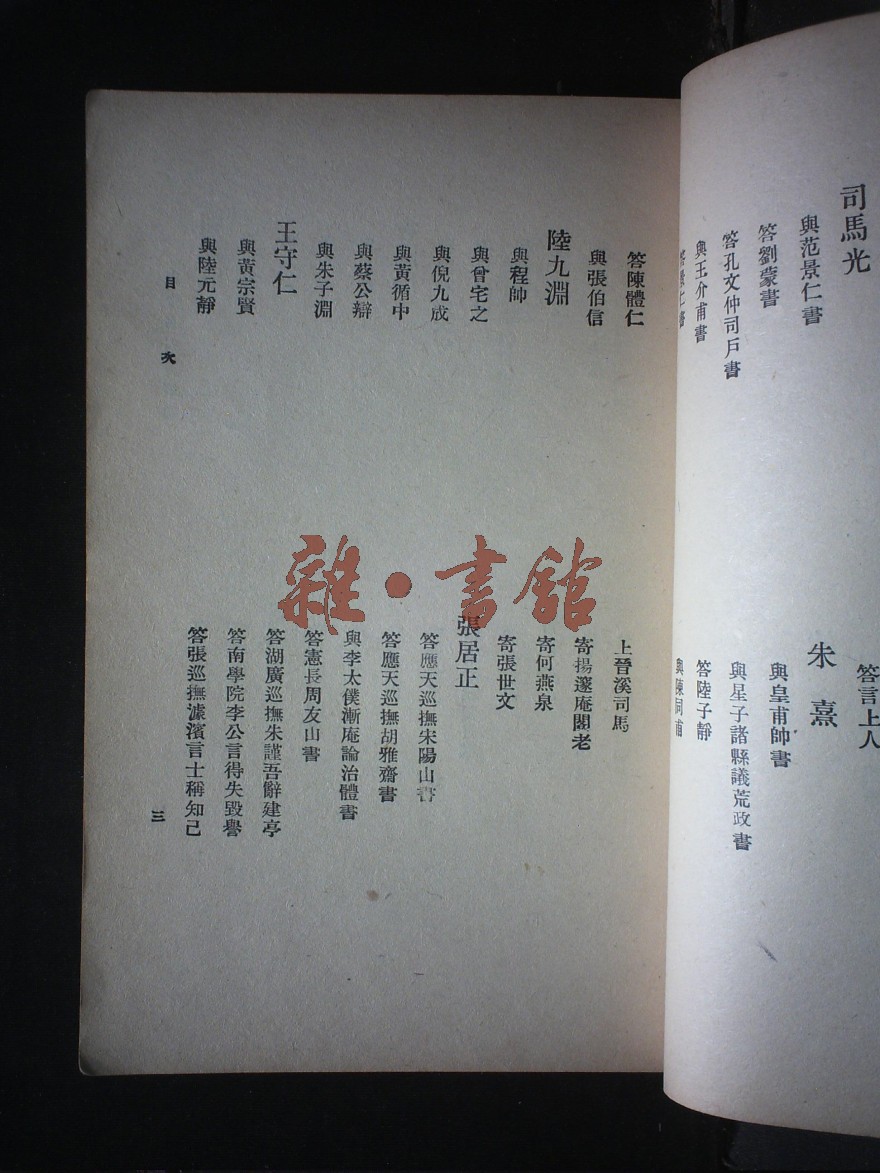 司馬光
與范景仁書
答劉蒙書
答孔文仲司戶書
與王介甫書
答言上人
朱熹
與皇甫帥書
與星子諸縣議荒政書
答陸子靜
與陳同甫
答陳體仁
與張伯信
陸九淵
與程帥
與曾宅之
與倪九成
與黃循中
與蔡公辯
與朱子淵
王守仁
與黃宗賢
與陸元靜
上晉溪司馬
寄揚邃庵閣老
寄何燕泉
寄張世文
張居正
答應天巡撫宋陽山書
答應天巡撫胡雅齋書
與李太僕漸庵論治體書
答憲長周友山書
答湖廣巡撫朱謹吾辭建亭
答南學院李公言得失毀譽
答張巡撫濾濱言士稱知己
目次
三
雜·書館